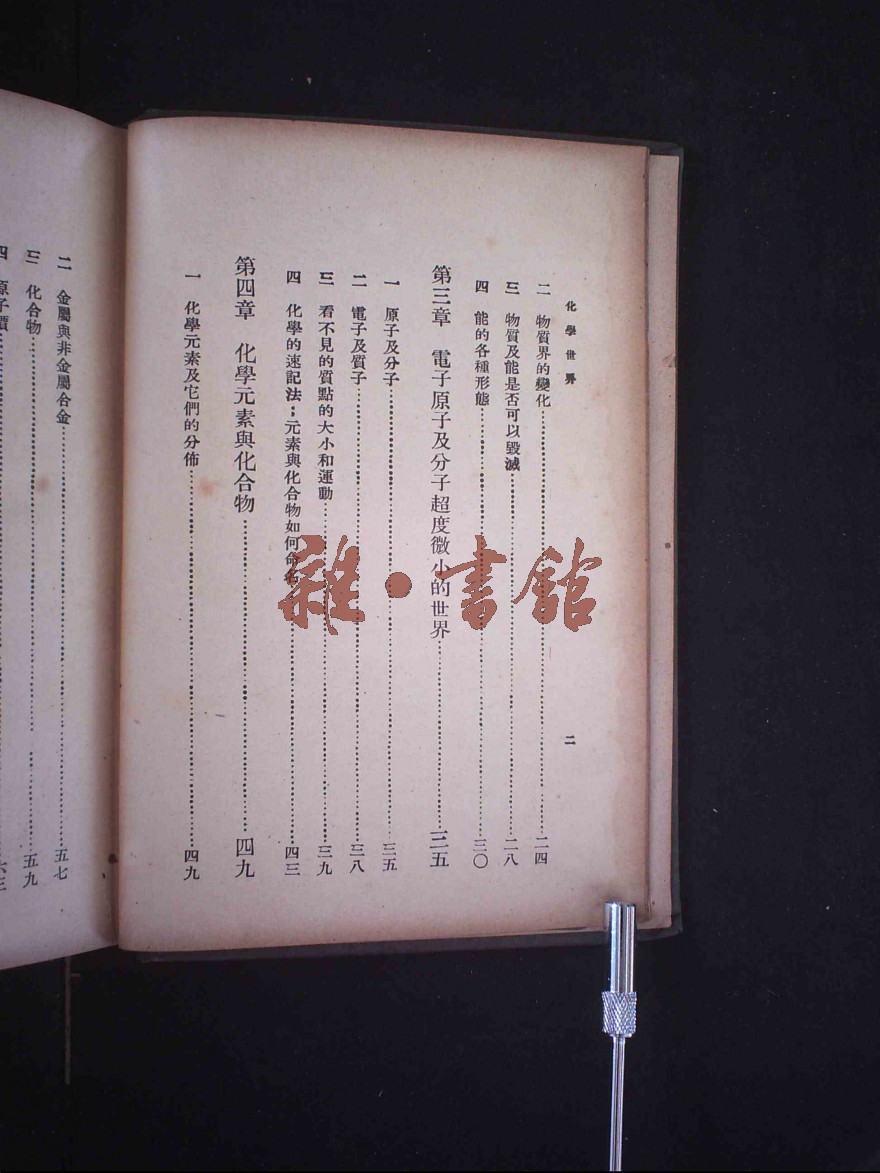 化學世界
二
二 物質界的變化……二四
三 物質及能是否可以毀滅……二八
四 能的各種形態……三〇
第三章 電子原子及分子超度微小的世界……三五
一 原子及分子……三五
二 電子及質子……三八
三 看不見的質點的大小和運動……三九
四 化學的速記法；元素與化合物如何命名……四三
第四章 化學元素與化合物……四九
一 化學元素及它們的分佈……四九
二 金屬與非金屬合金……五七
三 化合物……五九
四 原子價……六三
雜·書館